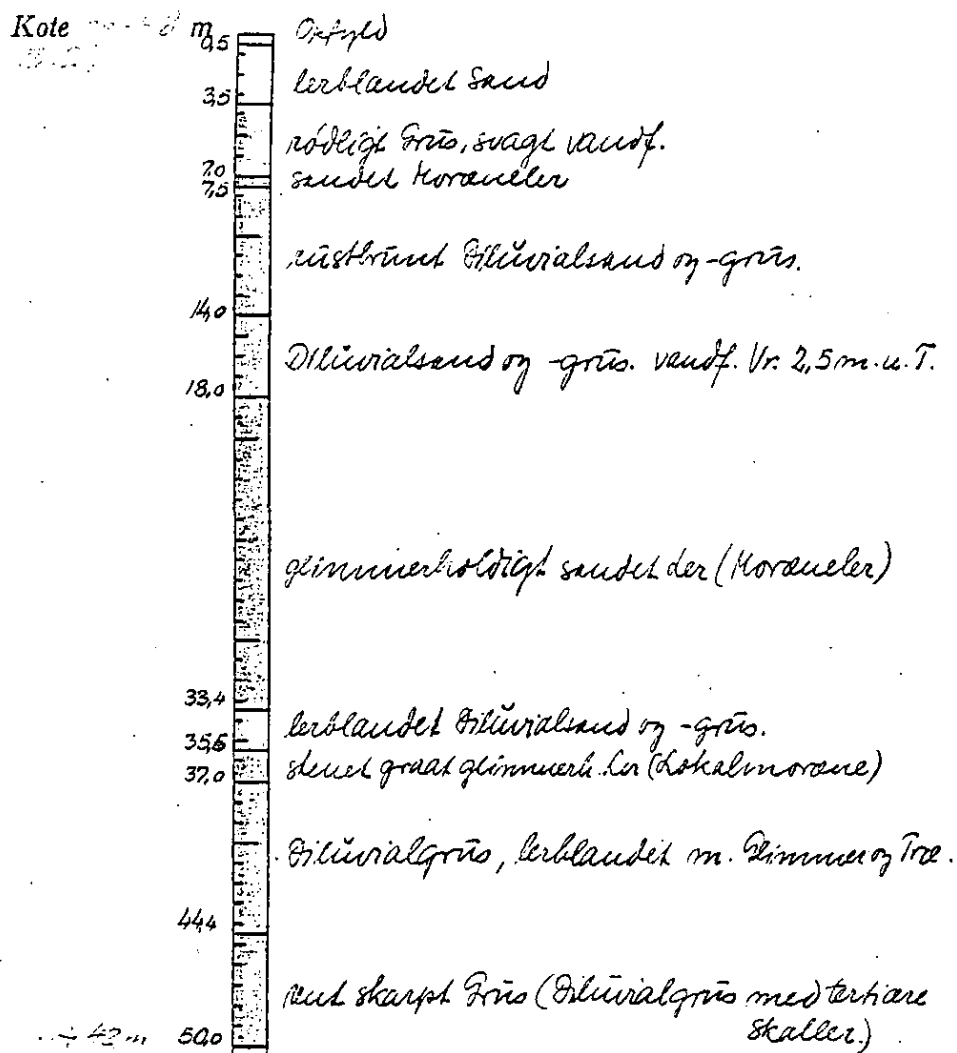 Kote m
0,5 Opfyld
lerblandet Sand
3,5
rødligt Grus, svagt vandf.
7,0
sandet Moræneler
7,5
rustbrunt Diluvialsand og -grus.
14,0
Diluvialsand og -grus. vandf. Vr. 2,5 m. u. T.
18,0
glimmerholdigt sandet Ler (Moræneler)
33,4
lerblandet Diluvialsand og -grus.
35,6
stenet graat glimmerh. Ler (Lokalmoræne)
37,0
Diluvialgrus, lerblandet m. Glimmer og Træ.
44,4
rent skarpt Grus (Diluvialgrus med tertiære
Skaller.)
÷ 42 m 50,0